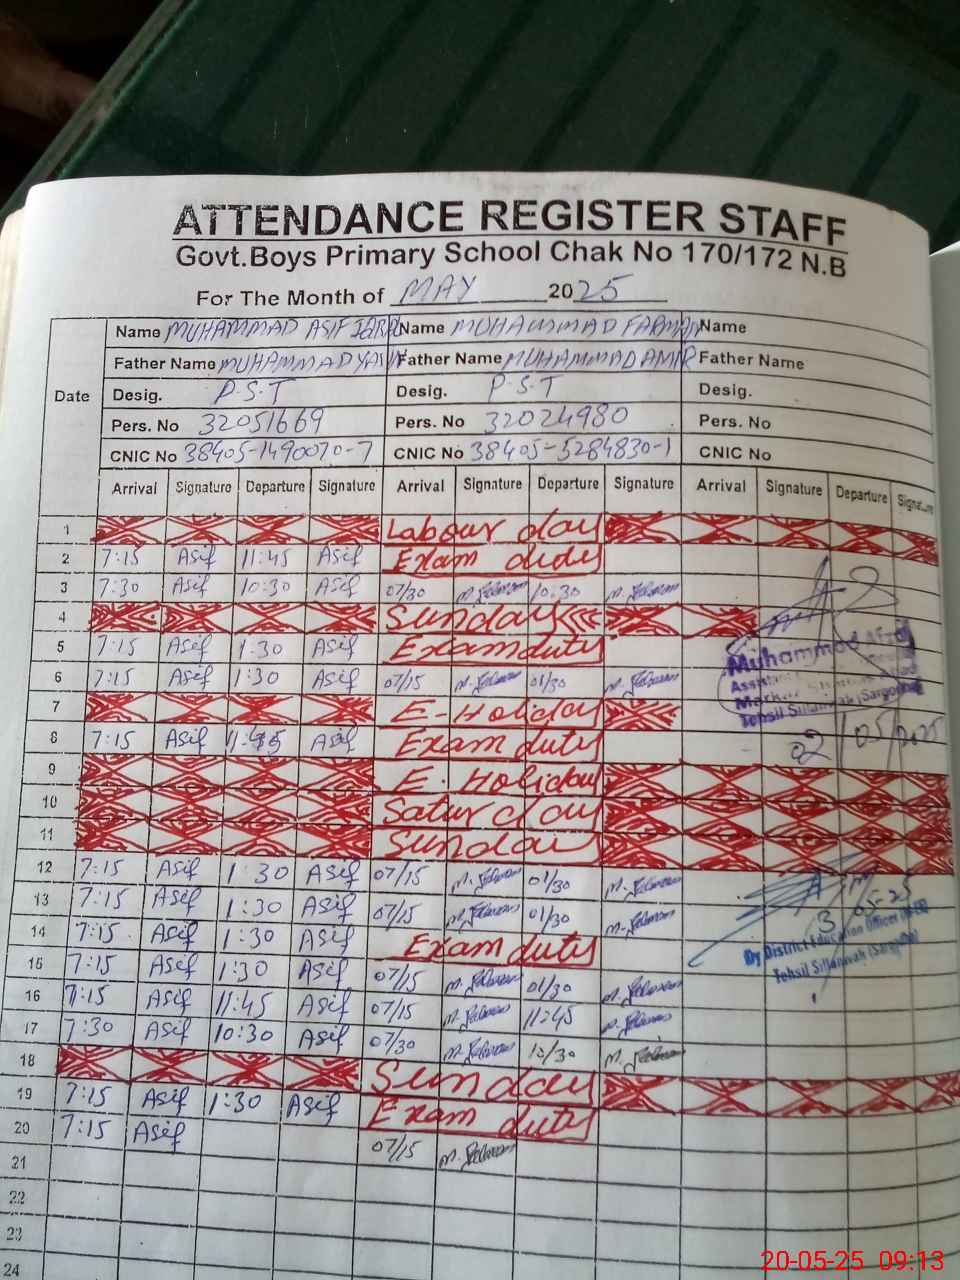 ATTENDANCE REGISTER STAFF
Govt.Boys Primary School Chak No 170/172 N.B
For The Month of MAY 2025
Name MUHAMMAD ASIF IQBAL Name MUHAMMAD FARMAN Name
Father Name MUHAMMAD YASIN Father Name MUHAMMAD AMIR Father Name
Date
Desig. P.S.T Desig. P.S.T Desig.
Pers. No 32051669 Pers. No 32024980 Pers. No
CNIC No 38405-1490070-7 CNIC No 38405-5284830-1 CNIC No
Arrival Signature Departure Signature Arrival Signature Departure Signature Arrival Signature Departure Signature
1 Labour day
2 7:15 Asif 11:45 Asif Exam duty
3 7:30 Asif 10:30 Asif 07/30 10:30
4 Sunday
5 7:15 Asif 1:30 Asif Exam duty
6 7:15 Asif 1:30 Asif 07/15 01/30
7 E-Holiday
8 7:15 Asif Asif Exam duty
9 E.Holiday
10 Saturday
11 Sunday
12 7:15 Asif 1:30 Asif 07/15 01/30
13 7:15 Asif 1:30 Asif 07/15 01/30
14 7:15 Asif 1:30 Asif Exam duty
15 7:15 Asif 1:30 Asif 07/15 01/30
16 7:15 Asif 11:45 Asif 07/15 11:45
17 7:30 Asif 10:30 Asif 07/30 10/30
18 Sunday
19 7:15 Asif 1:30 Asif Exam duty
20 7:15 Asif 07/15
21
22
23
24
Muhammad Afzal
Tehsil Sillanwali (Sargodha)
02/05/2025
05-25
Dy District Education Officer
Tehsil Sillanwali (Sargodha)
20-05-25 09:13